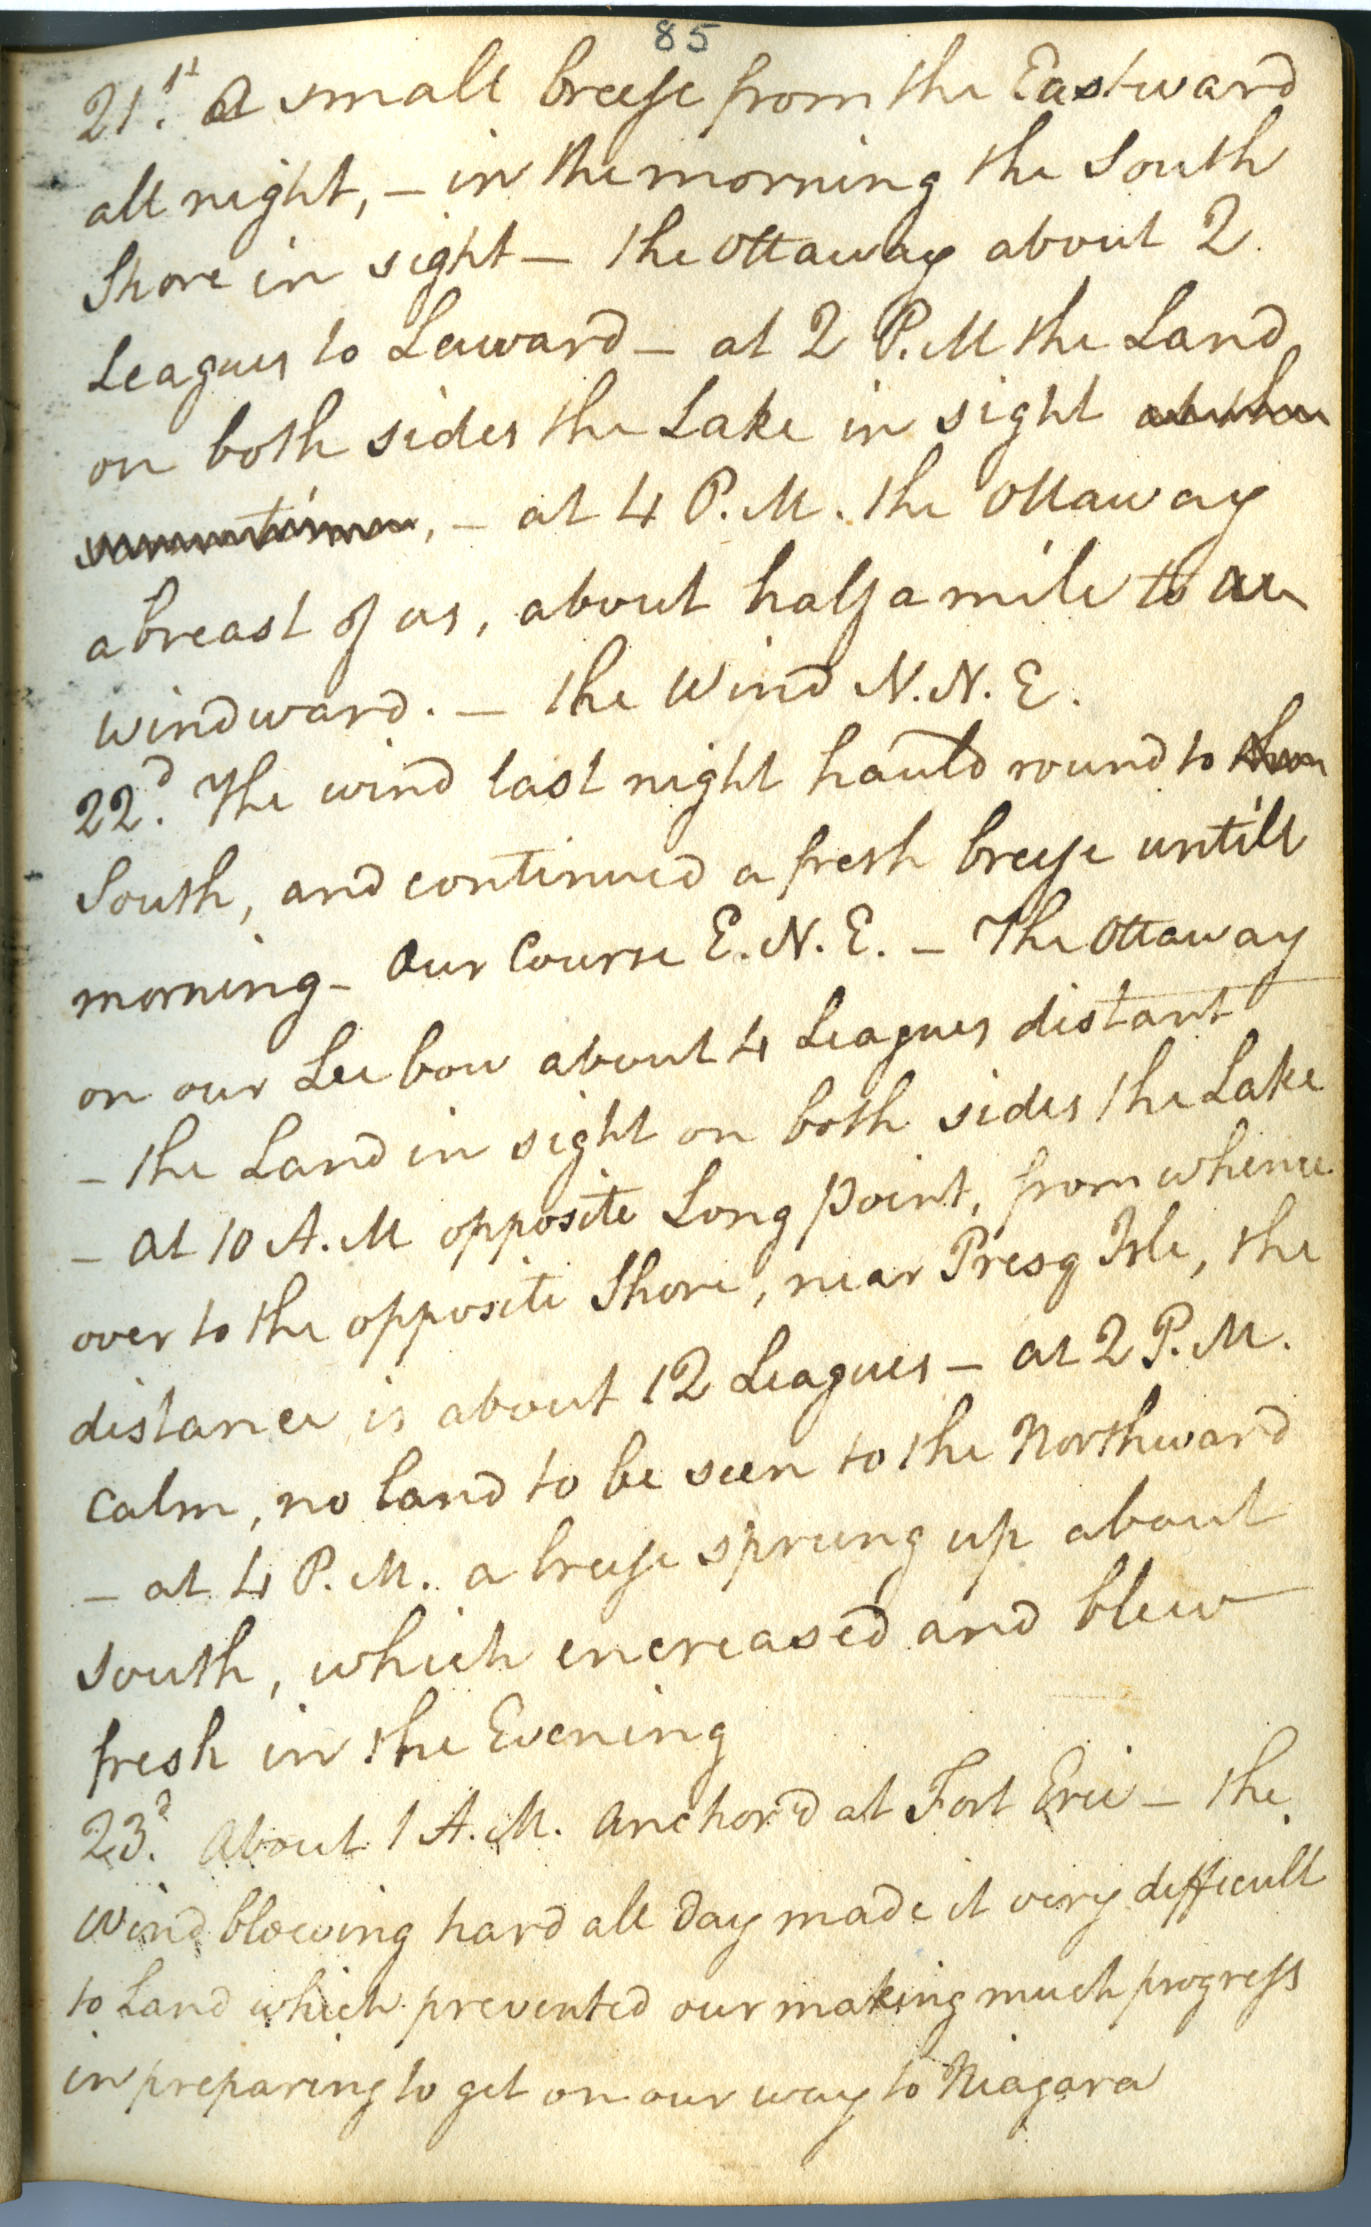 85
21.st A small breeze from the Eastward
all night, – in the morning the South
Shore in sight – the Ottaway about 2
Leagues to Leeward – at 2 P.M the Land
on both sides the Lake in sight
, – at 4 P.M. the Ottaway
abreast of us, about half a mile to
windward. – the Wind N.N.E.
22.d The wind last night hauld round to
South, and continued a fresh breeze untill
morning – Our Course E.N.E. – The Ottaway
on our Lee bow about 4 Leagues distant
– the Land in sight on both sides the Lake
– at 10 A.M opposite Long point, from whence
over to the opposite Shore, near Presq Isle, the
distance is about 12 Leagues – at 2 P.M.
Calm, no land to be seen to the Northward
– at 4 P.M. a breeze sprung up about
South, which encreased and blew
fresh in the Evening
23.d About 1 A.M. anchor'd at Fort Erie – the
Wind blowing hard all day made it very difficult
to Land which prevented our making much progress
in preparing to get on our way to Niagara